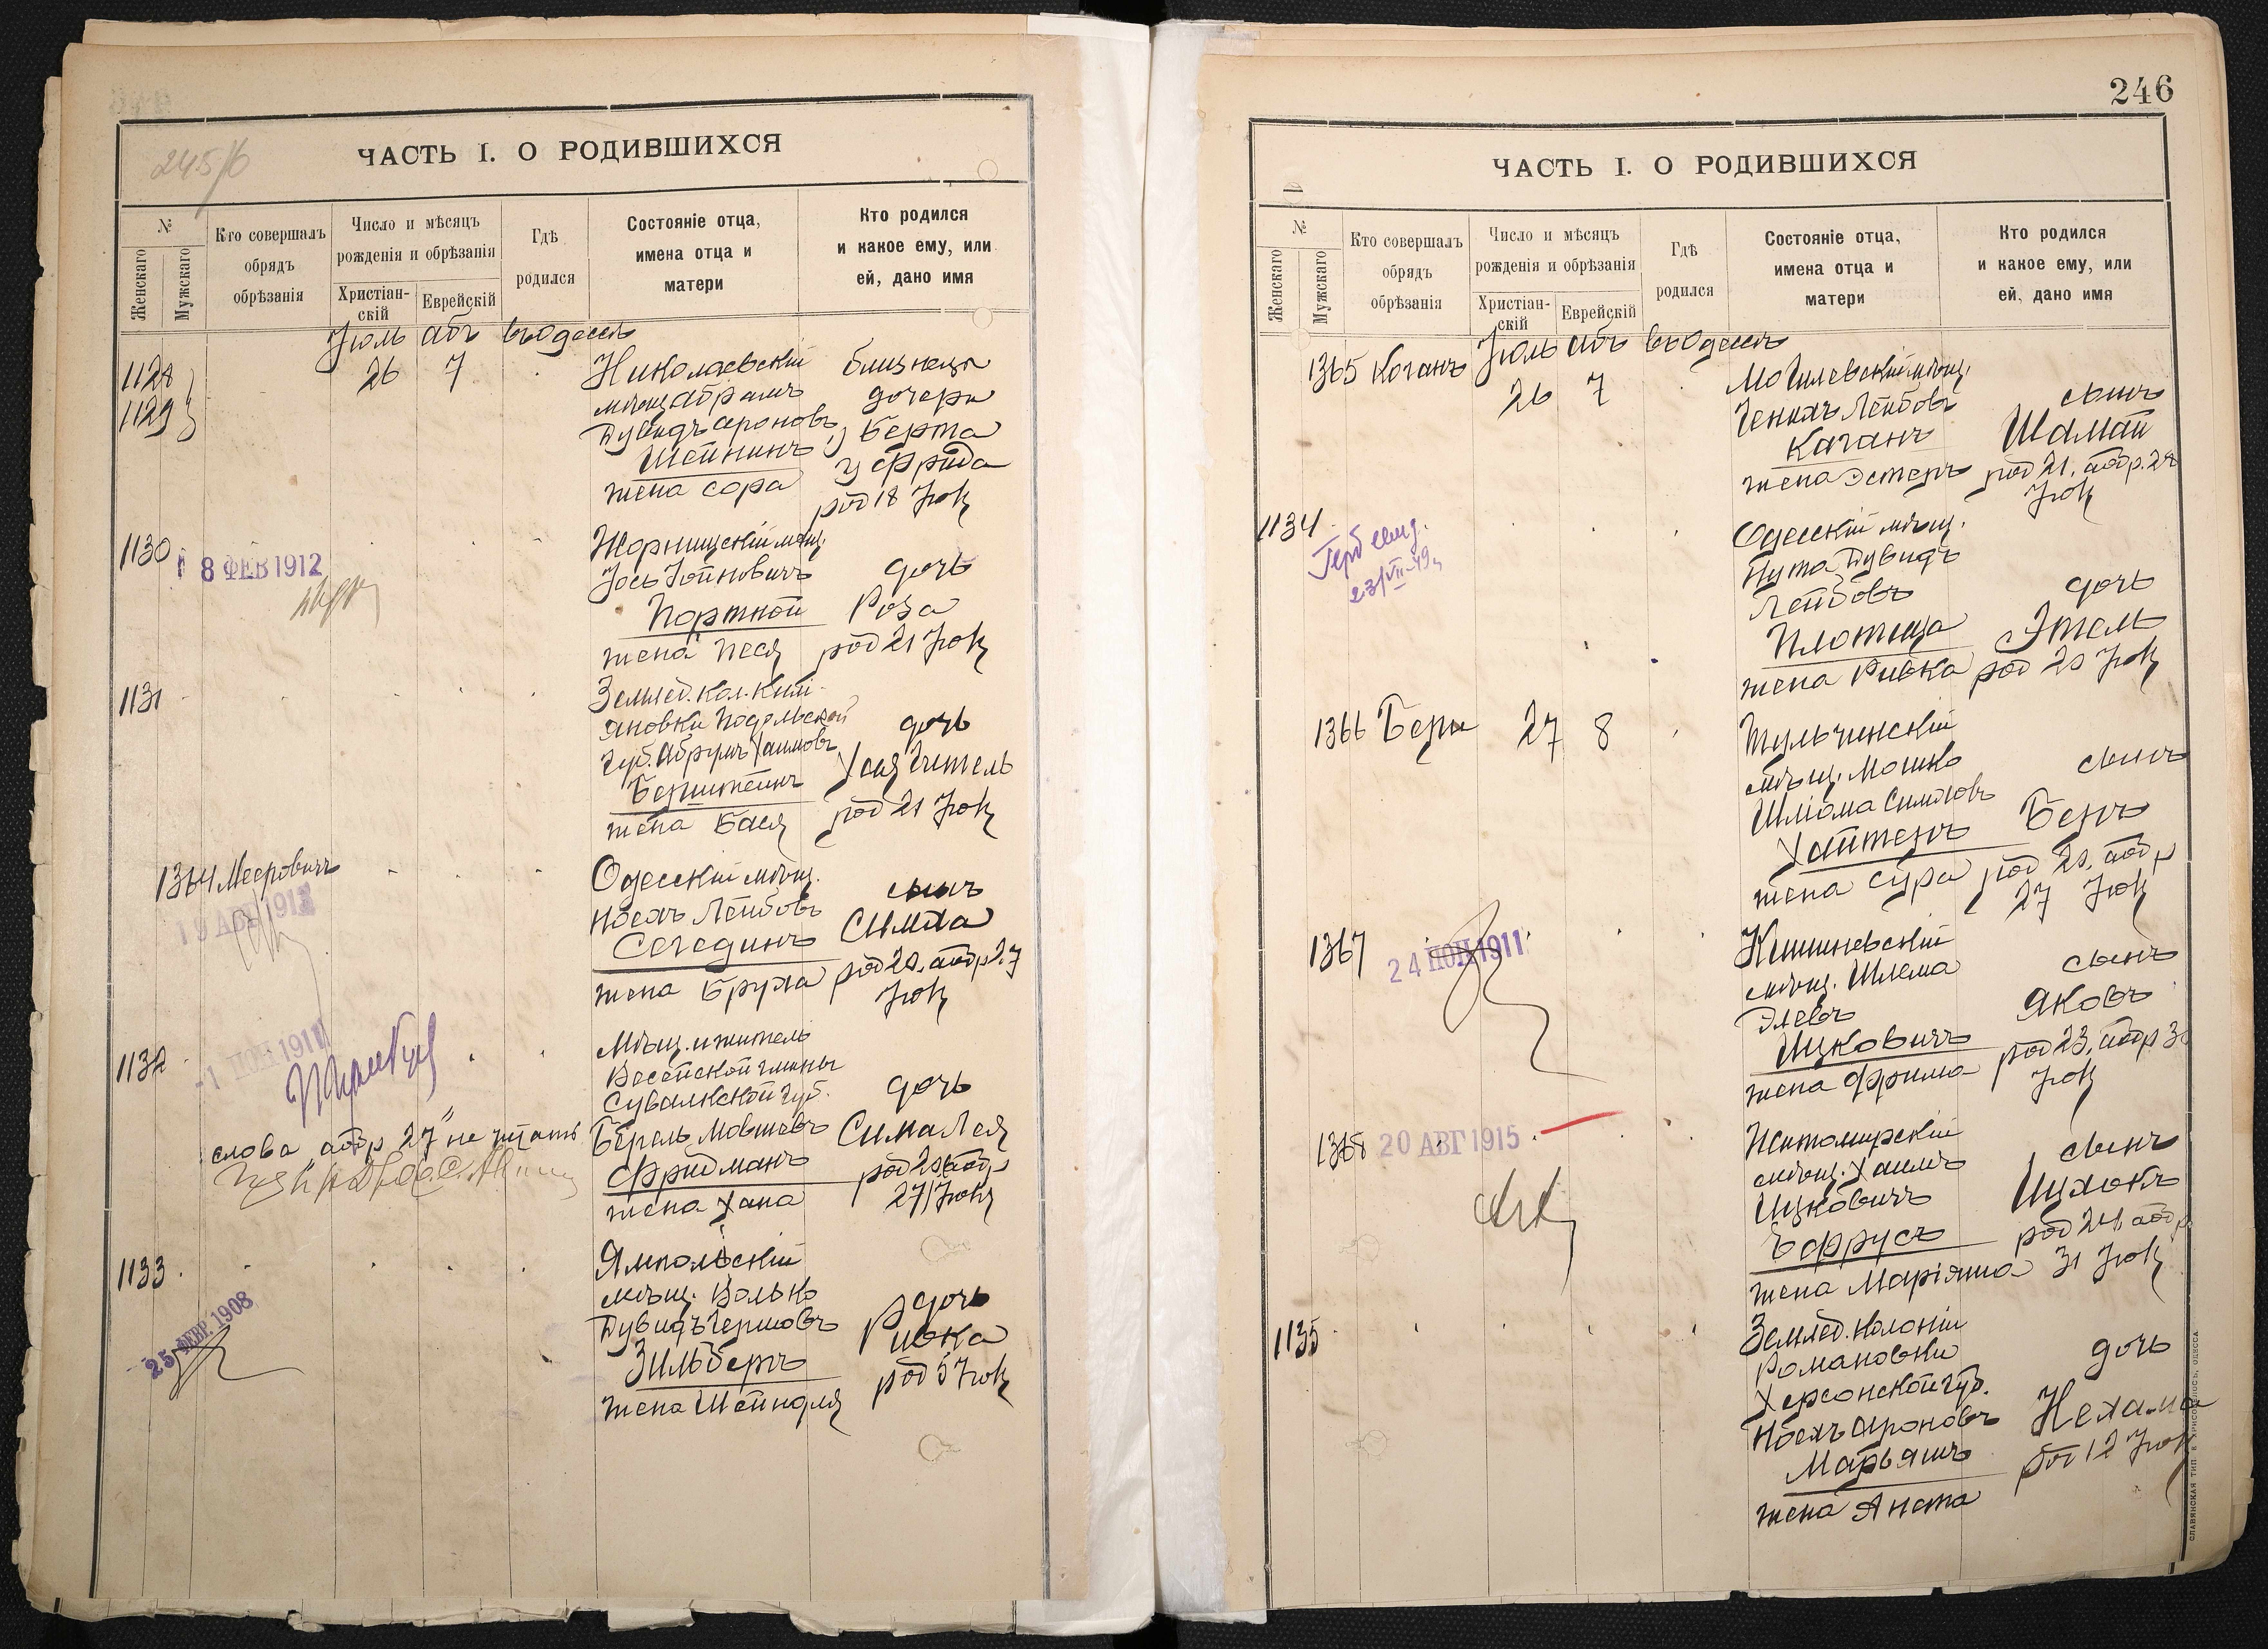 245/б
ЧАСТЬ I. О РОДИВШИХСЯ
№
Женскаго
Мужскаго
Кто совершалъ
обрядъ
обрѣзанія
Число и мѣсяцъ
рожденія и обрѣзанія
Христіан-
скій
Еврейскій
Гдѣ
родился
Состояніе отца,
имена отца и
матери
Кто родился
и какое ему, или
ей, дано имя
Іюль Абъ въ Одессѣ
1128
1129
26 7
Николаевскій
мѣщ. Абрамъ
Дувидъ Ароновъ
Шейнинъ
жена Сора
близнецы
дочери
1) Берта
2) Фрида
род 18 Іюл
1130
18 ФЕВ 1912
Жорнищскій мѣщ.
Іось Іойновичъ
Портной
жена Песя
дочь
Роза
род 21 Іюл
1131
Землед. кол. Кили-
яновки Подольской
Губ. Абрумъ Хаимовъ
Бернштейнъ
жена Бася
дочь
Хая Гитель
род 21 Іюл
1364 Мееровичъ
19 АВГ 1912
Одесскій мѣщ.
Ноехъ Лейбовъ
Сегединъ
жена Бруха
сынъ
Симха
род 20, аобр 27
Іюл
1132
-1 1911
слова „аобр 27" не читать
Мѣщ. и житель
Весейской гмины
Сувалкской Губ.
Берель Мовшевъ
Фридманъ
жена Хана
дочь
Сима Лея
род 20 аобр
27) Іюл
1133
25 ФЕВР. 1908
Ямпольскій
мѣщ. Волько
Дувидъ Гершовъ
Зильберъ
жена Шейндля
дочь
Ривка
род 5 Іюл
246
ЧАСТЬ I. О РОДИВШИХСЯ
№
Женскаго
Мужскаго
Кто совершалъ
обрядъ
обрѣзанія
Число и мѣсяцъ
рожденія и обрѣзанія
Христіан-
скій
Еврейскій
Гдѣ
родился
Состояніе отца,
имена отца и
матери
Кто родился
и какое ему, или
ей, дано имя
Іюль Абъ въ Одессѣ
1365 Коганъ
26 7
Могилевскій мѣщ.
Генихъ Лейбовъ
Каганъ
жена Эстеръ
сынъ
Шамай
род 21, аобр. 28
Іюл
1134
Герб свид.
23/VII-49
Одесскій мѣщ.
Нута Дувидъ
Лейбовъ
Плотица
жена Ривка
дочь
Этель
род 20 Іюл
1366 Бери 27 8
Тульчинскій
мѣщ. Мошко
Шліома Симховъ
Хайтеръ
жена Сура
сынъ
Беръ
род 20, аобр
27 Іюл
1367
24 НОЯ 1911
Кишиневскій
мѣщ. Шлема
Элевъ
Ицковичъ
жена Фрима
сынъ
Яковъ
род 23, аобр 30
Іюл
1368 20 АВГ 1915
Житомирскій
мѣщ. Хаимъ
Ицковичъ
Эфрусъ
жена Маріяма
сынъ
Ицхокъ
род 24 аобр
31 Іюл
1135
Землед. колоніи
Романовки
Херсонской Губ.
Ноехъ Ароновъ
Марьяшъ
жена Янта
дочь
Нехама
род 12 Іюл
СЛАВЯНСКАЯ ТИП. Е. ХРИСОГЕЛОСЪ, ОДЕССА